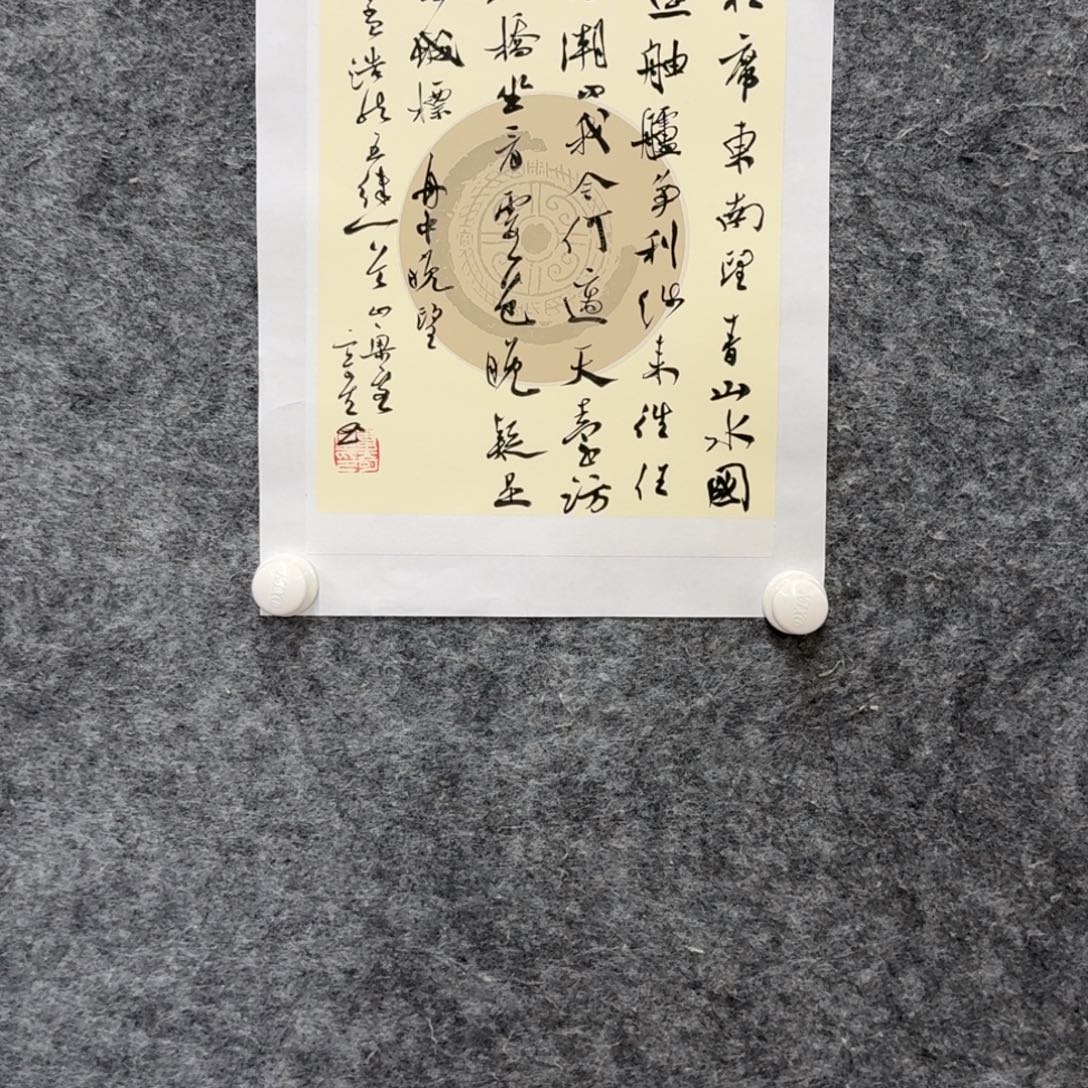 席東南望青山水國
舳艫爭利涉來往任
潮問我今何適天臺訪
橋坐看霞色晚疑是
城標 舟中晚望
孟浩然五律一首